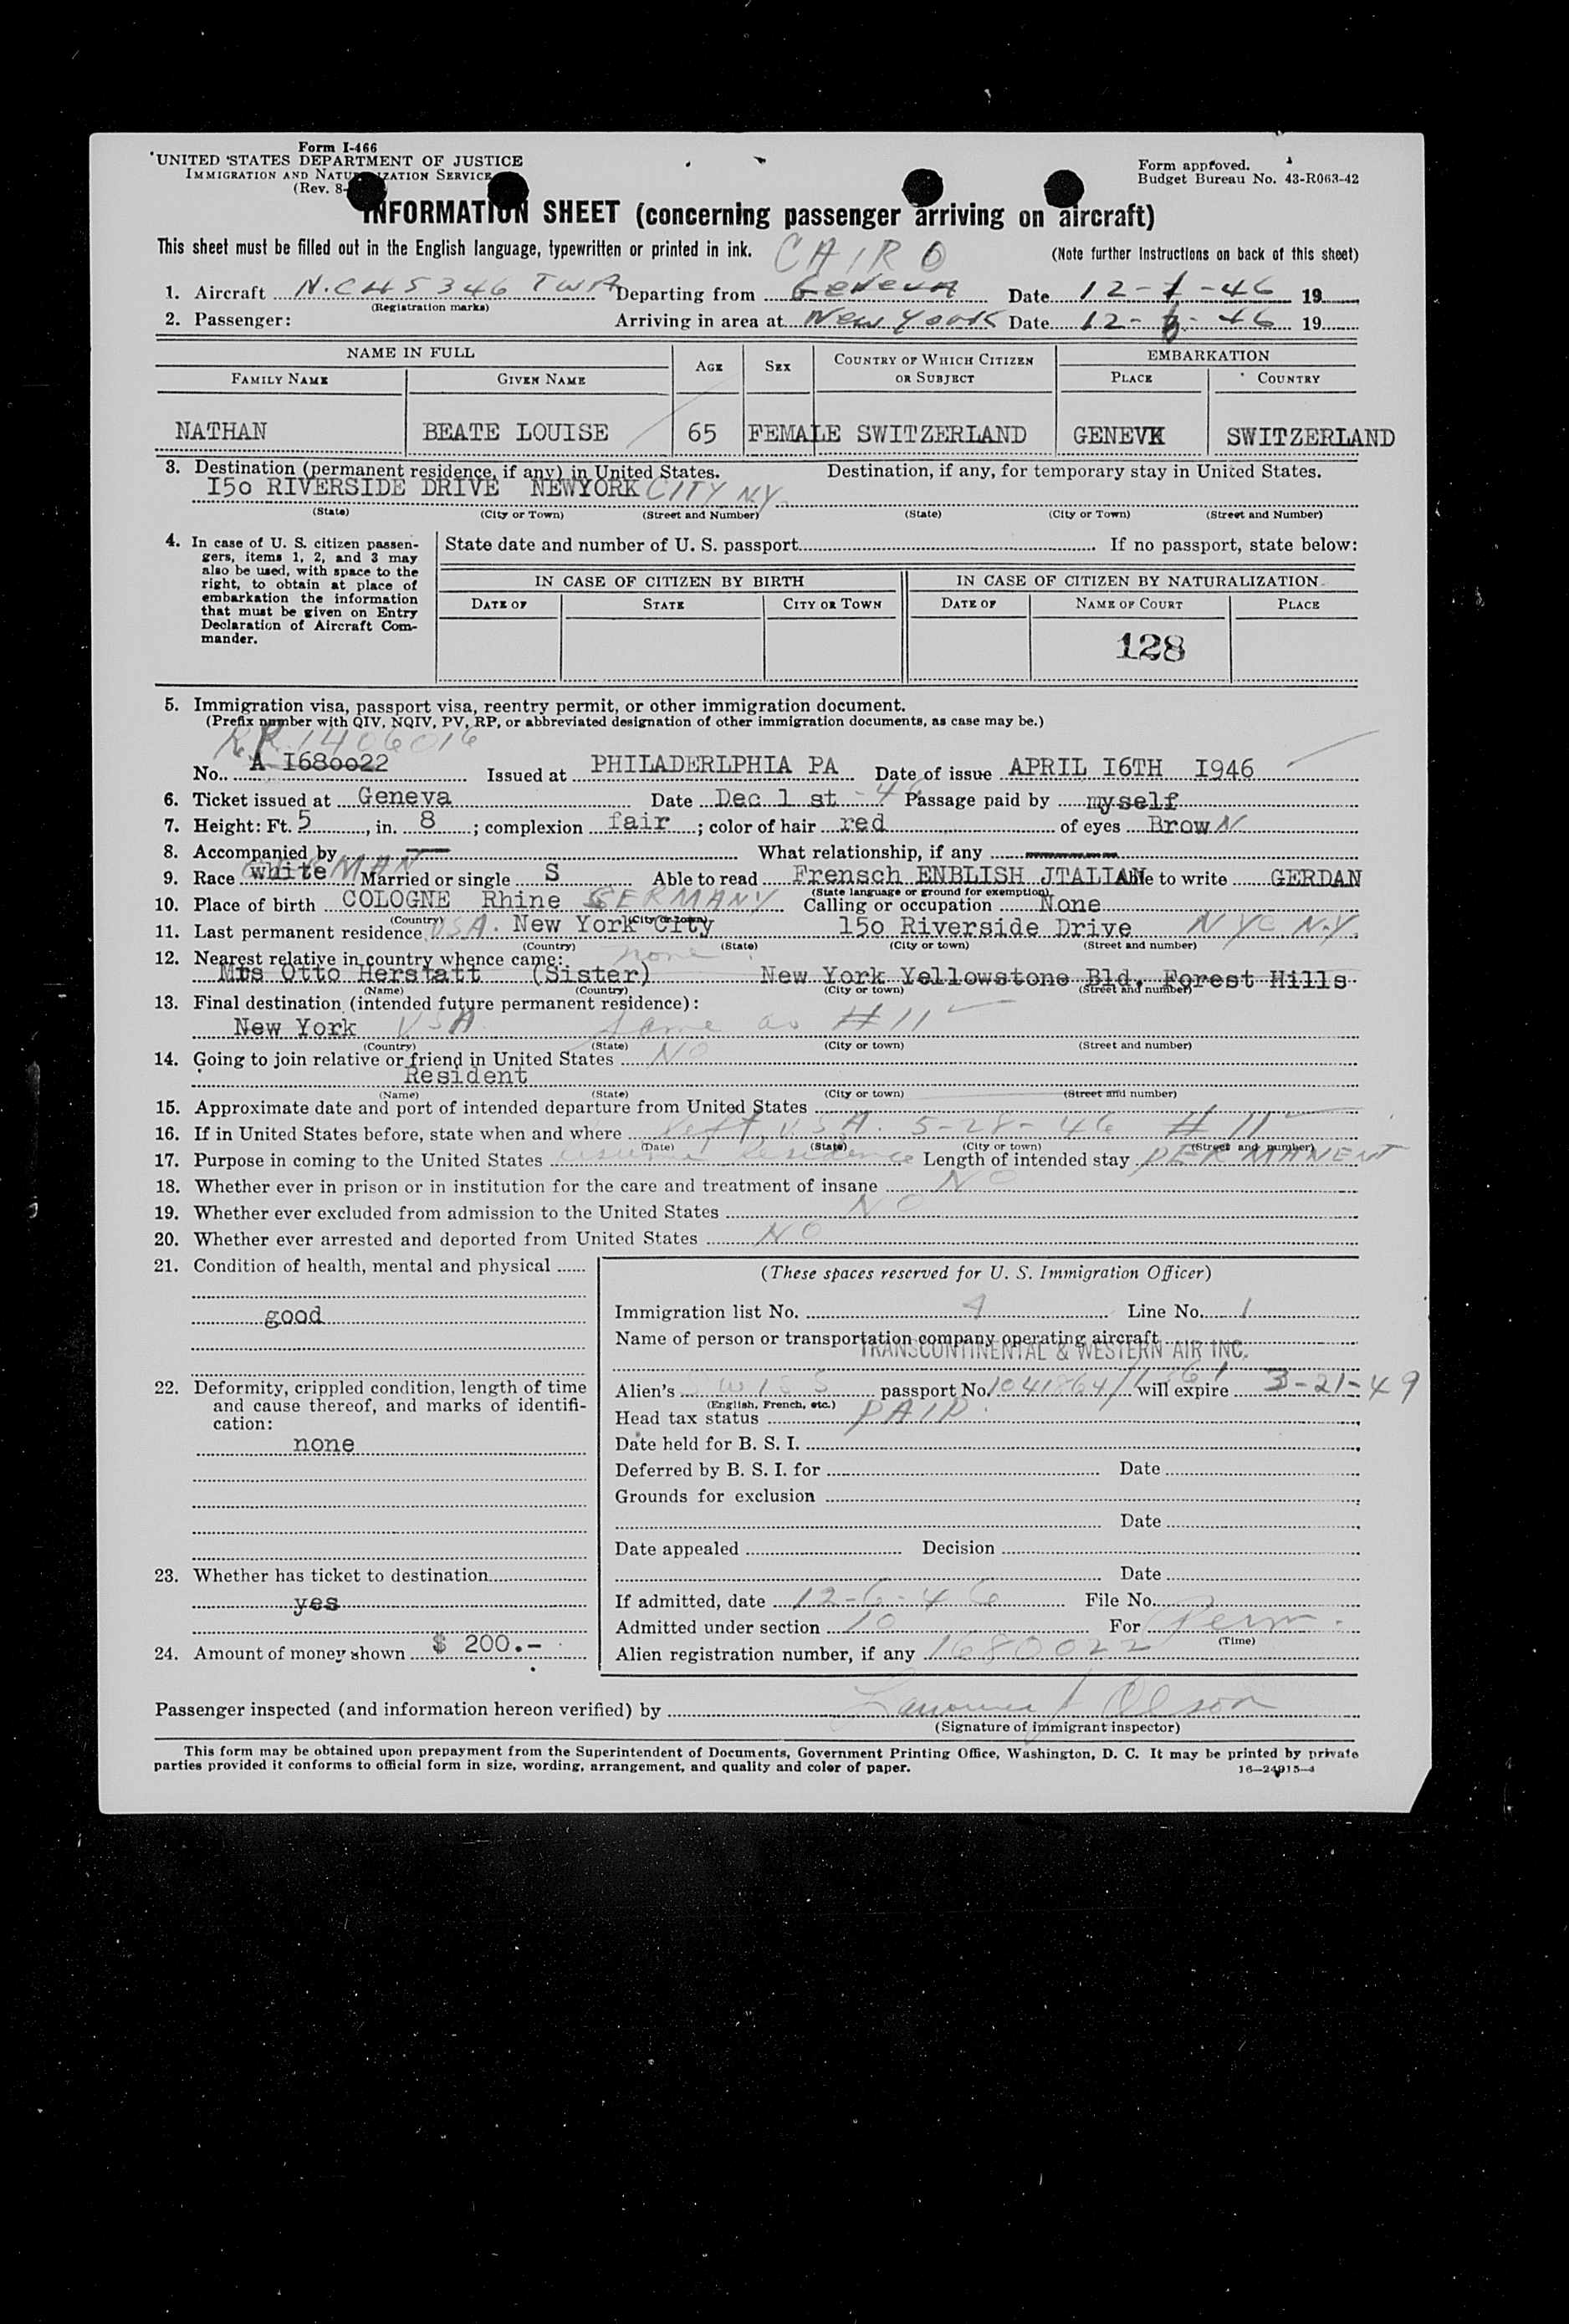 Form I-466
UNITED STATES DEPARTMENT OF JUSTICE
IMMIGRATION AND NATURALIZATION SERVICE
(Rev. 8-
Form approved.
Budget Bureau No. 43-R063-42
INFORMATION SHEET (concerning passenger arriving on aircraft)
This sheet must be filled out in the English language, typewritten or printed in ink. CAIRO (Note further instructions on back of this sheet)
1. Aircraft N.C45346 TWA Departing from Geneva Date 12-1-46 19
(Registration marks)
2. Passenger: Arriving in area at New York Date 12-6-46 19
NAME IN FULL AGE SEX COUNTRY OF WHICH CITIZEN OR SUBJECT EMBARKATION
FAMILY NAME GIVEN NAME PLACE COUNTRY
NATHAN BEATE LOUISE 65 FEMALE SWITZERLAND GENEVA SWITZERLAND
3. Destination (permanent residence, if any) in United States. Destination, if any, for temporary stay in United States.
I5o RIVERSIDE DRIVE NEWYORK CITY N.Y.
(State) (City or Town) (Street and Number) (State) (City or Town) (Street and Number)
4. In case of U. S. citizen passengers, items 1, 2, and 3 may also be used, with space to the right, to obtain at place of embarkation the information that must be given on Entry Declaration of Aircraft Commander.
State date and number of U. S. passport If no passport, state below:
IN CASE OF CITIZEN BY BIRTH IN CASE OF CITIZEN BY NATURALIZATION
DATE OF STATE CITY OR TOWN DATE OF NAME OF COURT PLACE
128
5. Immigration visa, passport visa, reentry permit, or other immigration document.
(Prefix number with QIV, NQIV, PV, RP, or abbreviated designation of other immigration documents, as case may be.)
RP 1406016
No. A I680022 Issued at PHILADERLPHIA PA Date of issue APRIL I6TH I946
6. Ticket issued at Geneva Date Dec 1 st - 46 Passage paid by myself
7. Height: Ft. 5, in. 8; complexion fair; color of hair red of eyes BrowN
8. Accompanied by — What relationship, if any
9. Race white GERMAN Married or single S Able to read Frensch ENBLISH JTALIAN Able to write GERDAN
(State language or ground for exemption)
10. Place of birth COLOGNE Rhine GERMANY Calling or occupation None
(Country) (City or town)
11. Last permanent residence USA. New York City 15o Riverside Drive NYC N.Y.
(Country) (State) (City or town) (Street and number)
12. Nearest relative in country whence came: none
Mrs Otto Herstatt (Sister) New York Yellowstone Bld. Forest Hills
(Name) (Country) (City or town) (Street and number)
13. Final destination (intended future permanent residence):
New York USA same as #11
(Country) (State) (City or town) (Street and number)
14. Going to join relative or friend in United States NO
Resident
(Name) (State) (City or town) (Street and number)
15. Approximate date and port of intended departure from United States
16. If in United States before, state when and where left USA. 5-28-46 #11
(Date) (State) (City or town) (Street and number)
17. Purpose in coming to the United States Residence Length of intended stay PERMANENT
18. Whether ever in prison or in institution for the care and treatment of insane NO
19. Whether ever excluded from admission to the United States NO
20. Whether ever arrested and deported from United States NO
21. Condition of health, mental and physical
good
22. Deformity, crippled condition, length of time and cause thereof, and marks of identification:
none
23. Whether has ticket to destination
yes
24. Amount of money shown $ 200.-
(These spaces reserved for U. S. Immigration Officer)
Immigration list No. 4 Line No. 1
Name of person or transportation company operating aircraft
TRANSCONTINENTAL & WESTERN AIR INC.
Alien's SWISS passport No. 1041864/1361 will expire 3-21-49
(English, French, etc.)
Head tax status PAID.
Date held for B. S. I.
Deferred by B. S. I. for Date
Grounds for exclusion
Date
Date appealed Decision
Date
If admitted, date 12-6-46 File No.
Admitted under section 10 For Perm.
(Time)
Alien registration number, if any 1680022
Passenger inspected (and information hereon verified) by Olson
(Signature of immigrant inspector)
This form may be obtained upon prepayment from the Superintendent of Documents, Government Printing Office, Washington, D. C. It may be printed by private
parties provided it conforms to official form in size, wording, arrangement, and quality and color of paper.
16—24915-4